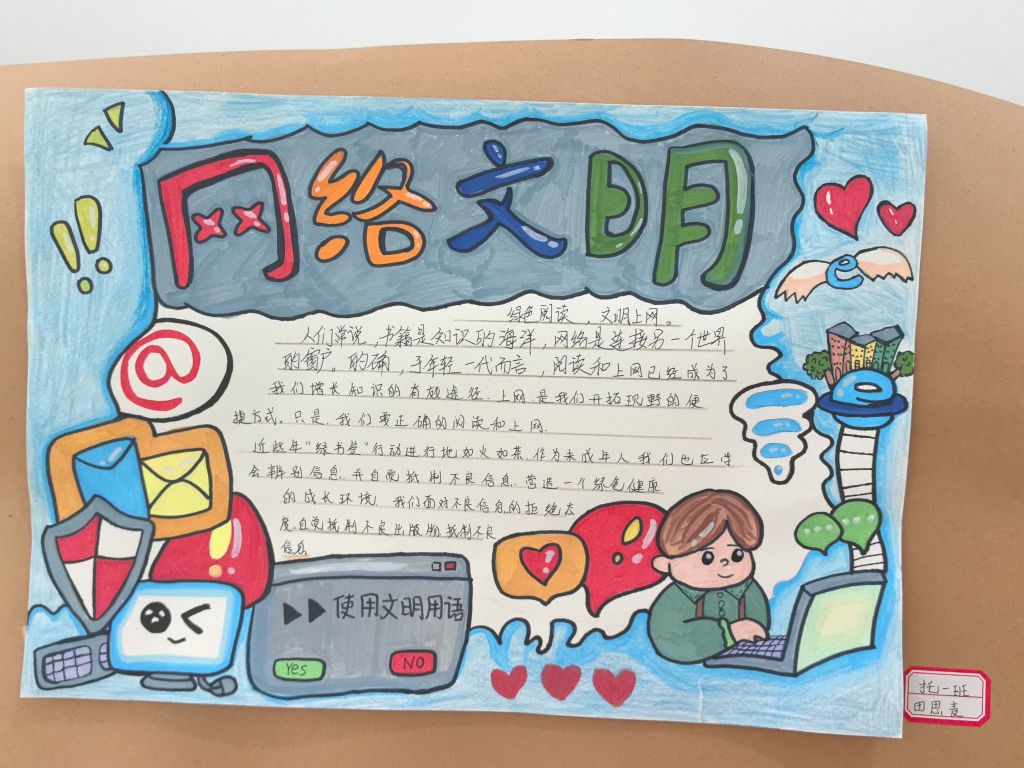 网络文明
绿色阅读，文明上网。
人们常说，书籍是知识的海洋，网络是连接另一个世界
的窗户。的确，于年轻一代而言，阅读和上网已经成为了
我们增长知识的有效途径.上网是我们开拓视野的便
捷方式。只是.我们要正确的阅读和上网.
近些年“绿书签”行动进行地如火如荼.作为未成年人我们也应学
会辨别信息.并自觉抵制不良信息.营造一个绿色健康
的成长环境.我们面对不良信息的拒绝态
度.自觉抵制不良出版物.抵制不良
信息
@
e
e
使用文明用语
Yes
NO
托一班
田思麦